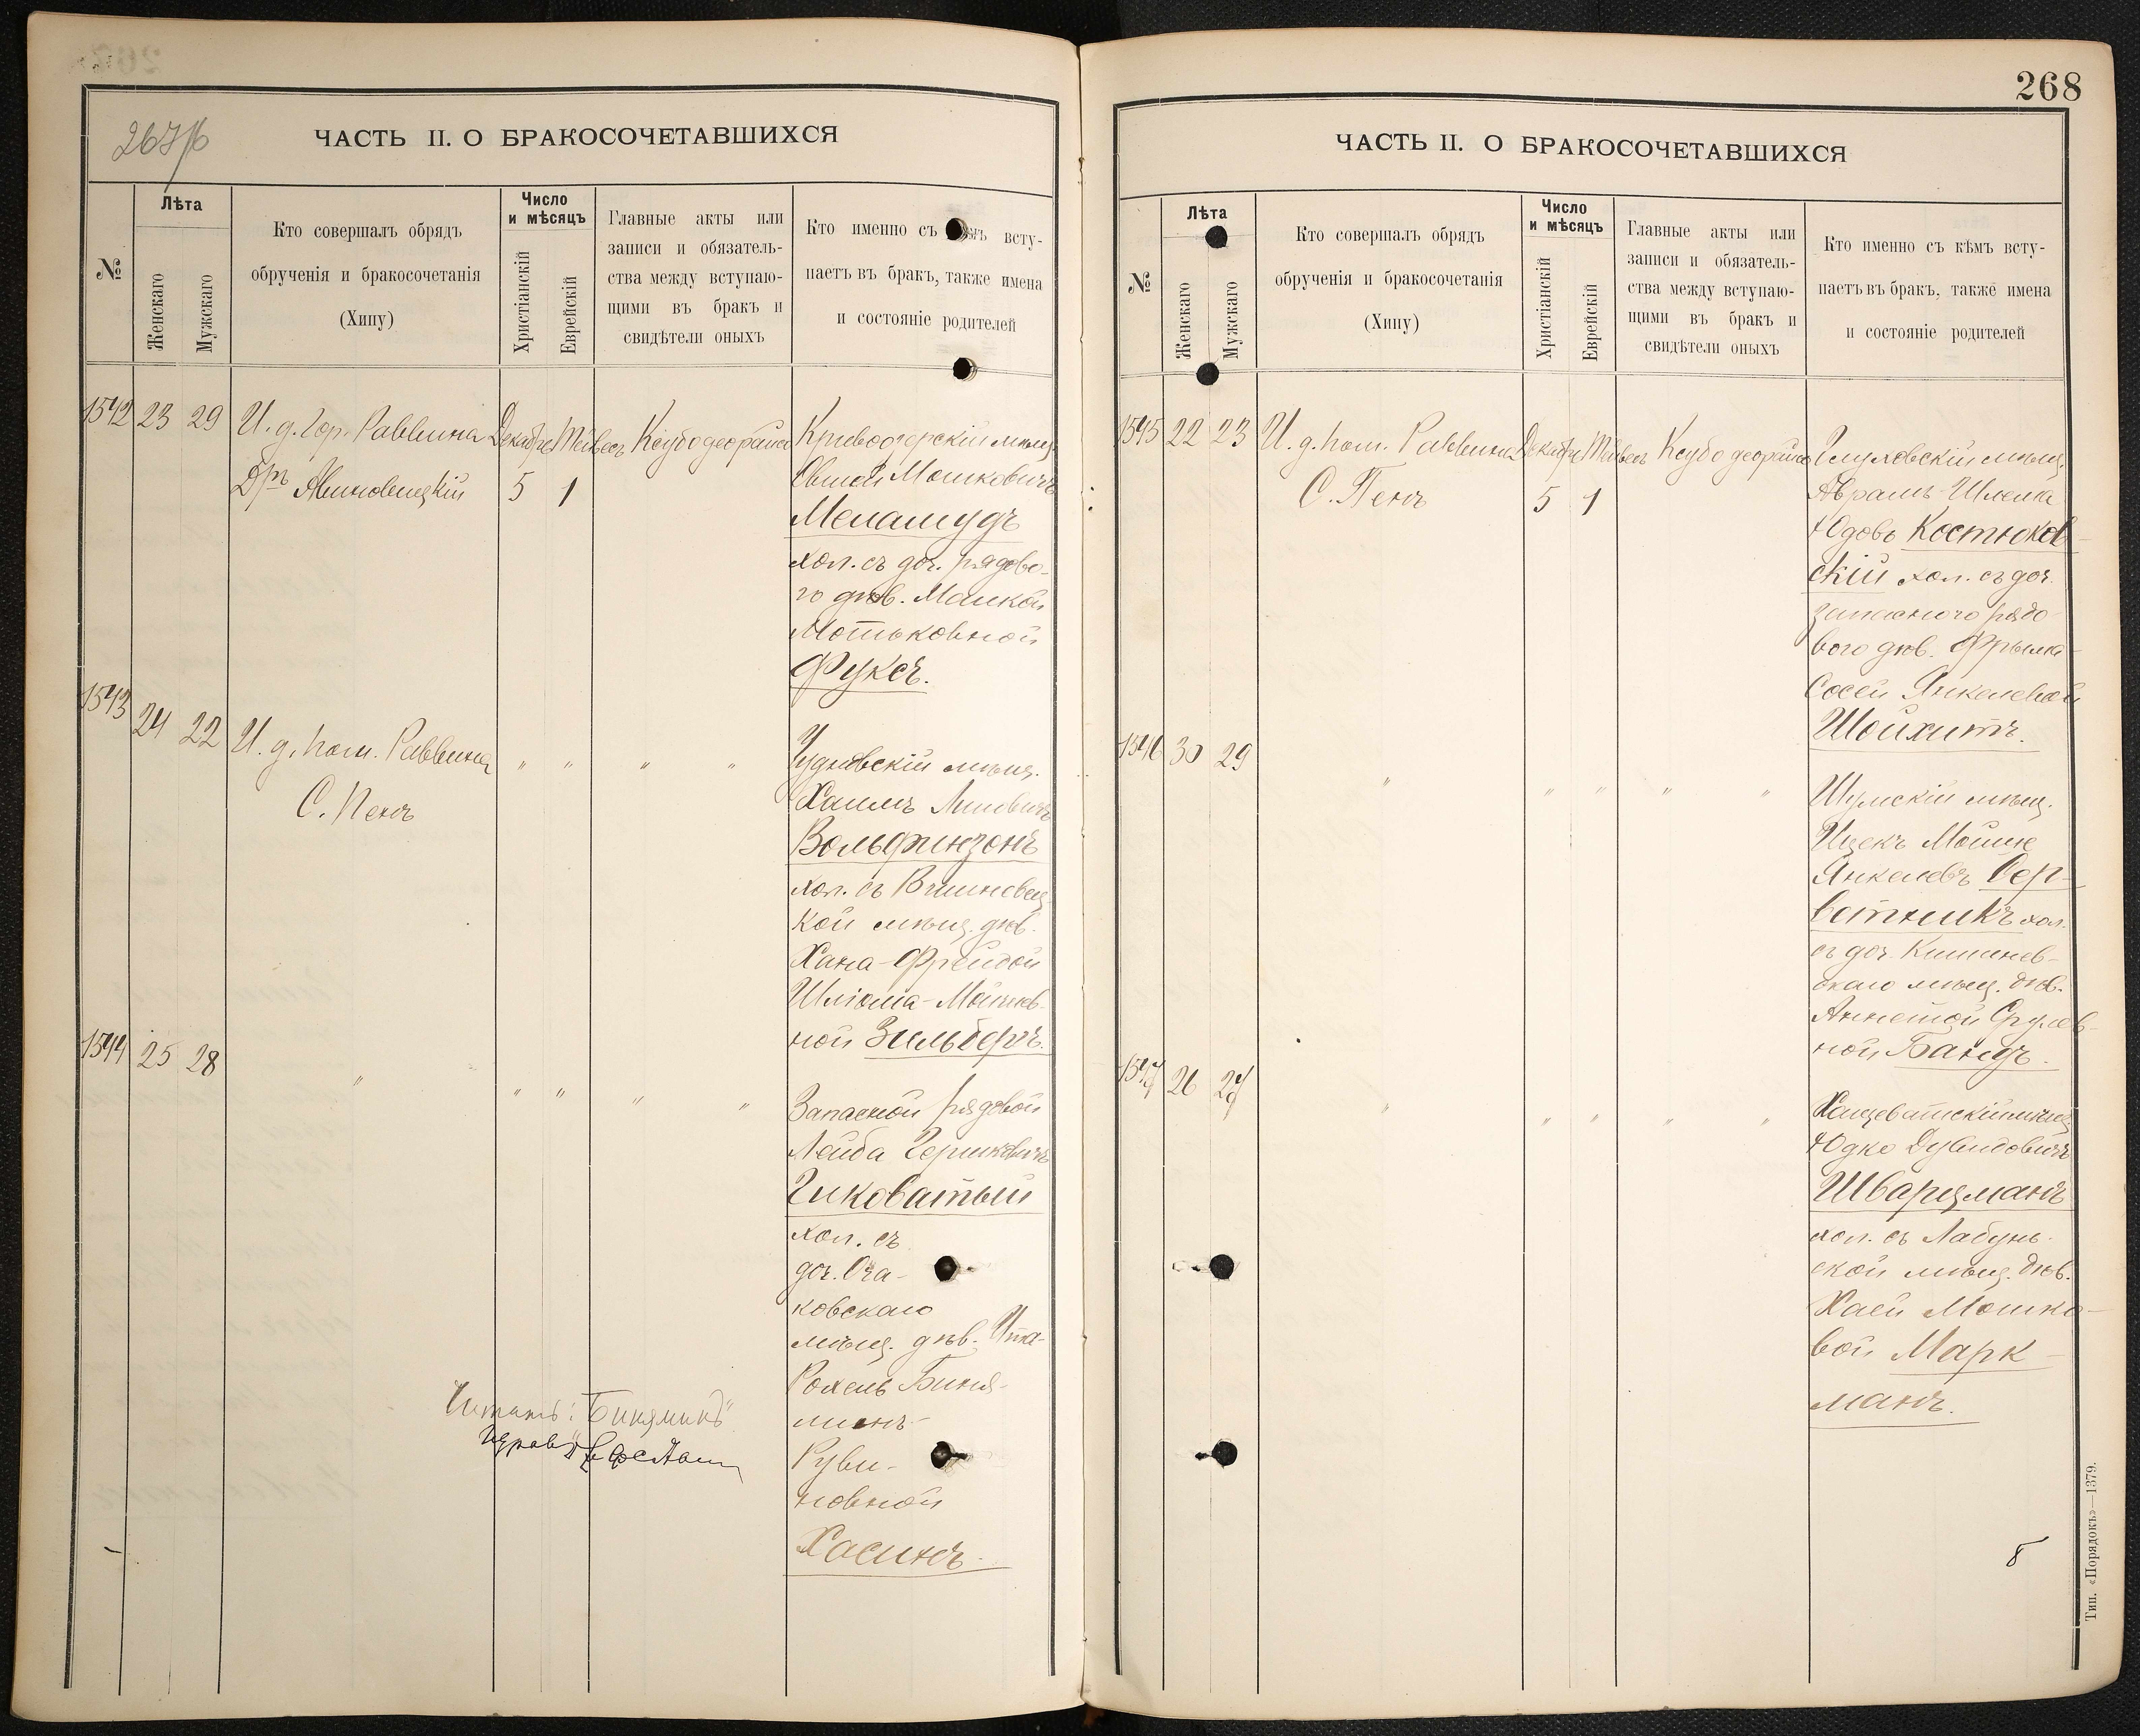 267/б
ЧАСТЬ II. О БРАКОСОЧЕТАВШИХСЯ
№
Лѣта
Женскаго
Мужскаго
Кто совершалъ обрядъ
обрученія и бракосочетанія
(Хипу)
Число
и мѣсяцъ
Христіанскій
Еврейскій
Главные акты или
записи и обязатель-
ства между вступаю-
щими въ бракъ и
свидѣтели оныхъ
Кто именно съ всту-
паетъ въ бракъ, также имена
и состояніе родителей
1542 23 29 И. д. Гор. Раввина Декабря Тейвесъ
Дръ 5 1
Мошковичъ
Меламудъ
хол. съ доч. рядово-
го дѣв.
Мотьковной
Фуксъ.
1543 24 22 И. д. пом. Раввина " " " "
С. Пенъ
Чудновскій мѣщ.
Хаимъ
Вольфинзонъ
хол. съ Вишневец
кой мѣщ. дѣв.
Хана-Фрейдой
ной Зильберъ.
1544 25 28 " " " " "
Запасной рядовой
Лейба Гершковичъ
Чиковатый
хол. съ
доч. Оча-
ковскаго
мѣщ. дѣв. Ита-
Рохель Биня-
минъ-
Руви-
новной
Хасинъ.
Читать: "Биняминъ"
268
ЧАСТЬ II. О БРАКОСОЧЕТАВШИХСЯ
№
Лѣта
Женскаго
Мужскаго
Кто совершалъ обрядъ
обрученія и бракосочетанія
(Хипу)
Число
и мѣсяцъ
Христіанскій
Еврейскій
Главные акты или
записи и обязатель-
ства между вступаю-
щими въ бракъ и
свидѣтели оныхъ
Кто именно съ кѣмъ всту-
паетъ въ бракъ, также имена
и состояніе родителей
1545 22 23 И. д. пом. Раввина Декабря Тейвесъ
С. Пенъ 5 1
Абрамъ-Шлема
Юдовъ Костюков-
скій хол. съ доч.
запасного рядо-
вого дѣв. Фрыма-
Сосей Янкелевой
Шойхитъ.
1546 30 29 " " " " "
Шумскій мѣщ.
Ицекъ Мойше
Янкелевъ Сер-
ветникъ хол.
съ доч. Кишинев-
скаго мѣщ. дѣв.
Аннетой Срулев-
ной Бандъ.
1547 26 27 " " " " "
Хащеватскій мѣщ.
Юдко Дувидовичъ
Шварцманъ
хол. съ Лабунь-
ской мѣщ. дѣв.
Хаей Мошко-
вой Марк-
манъ.
8
Тип. «Порядокъ»—1379.